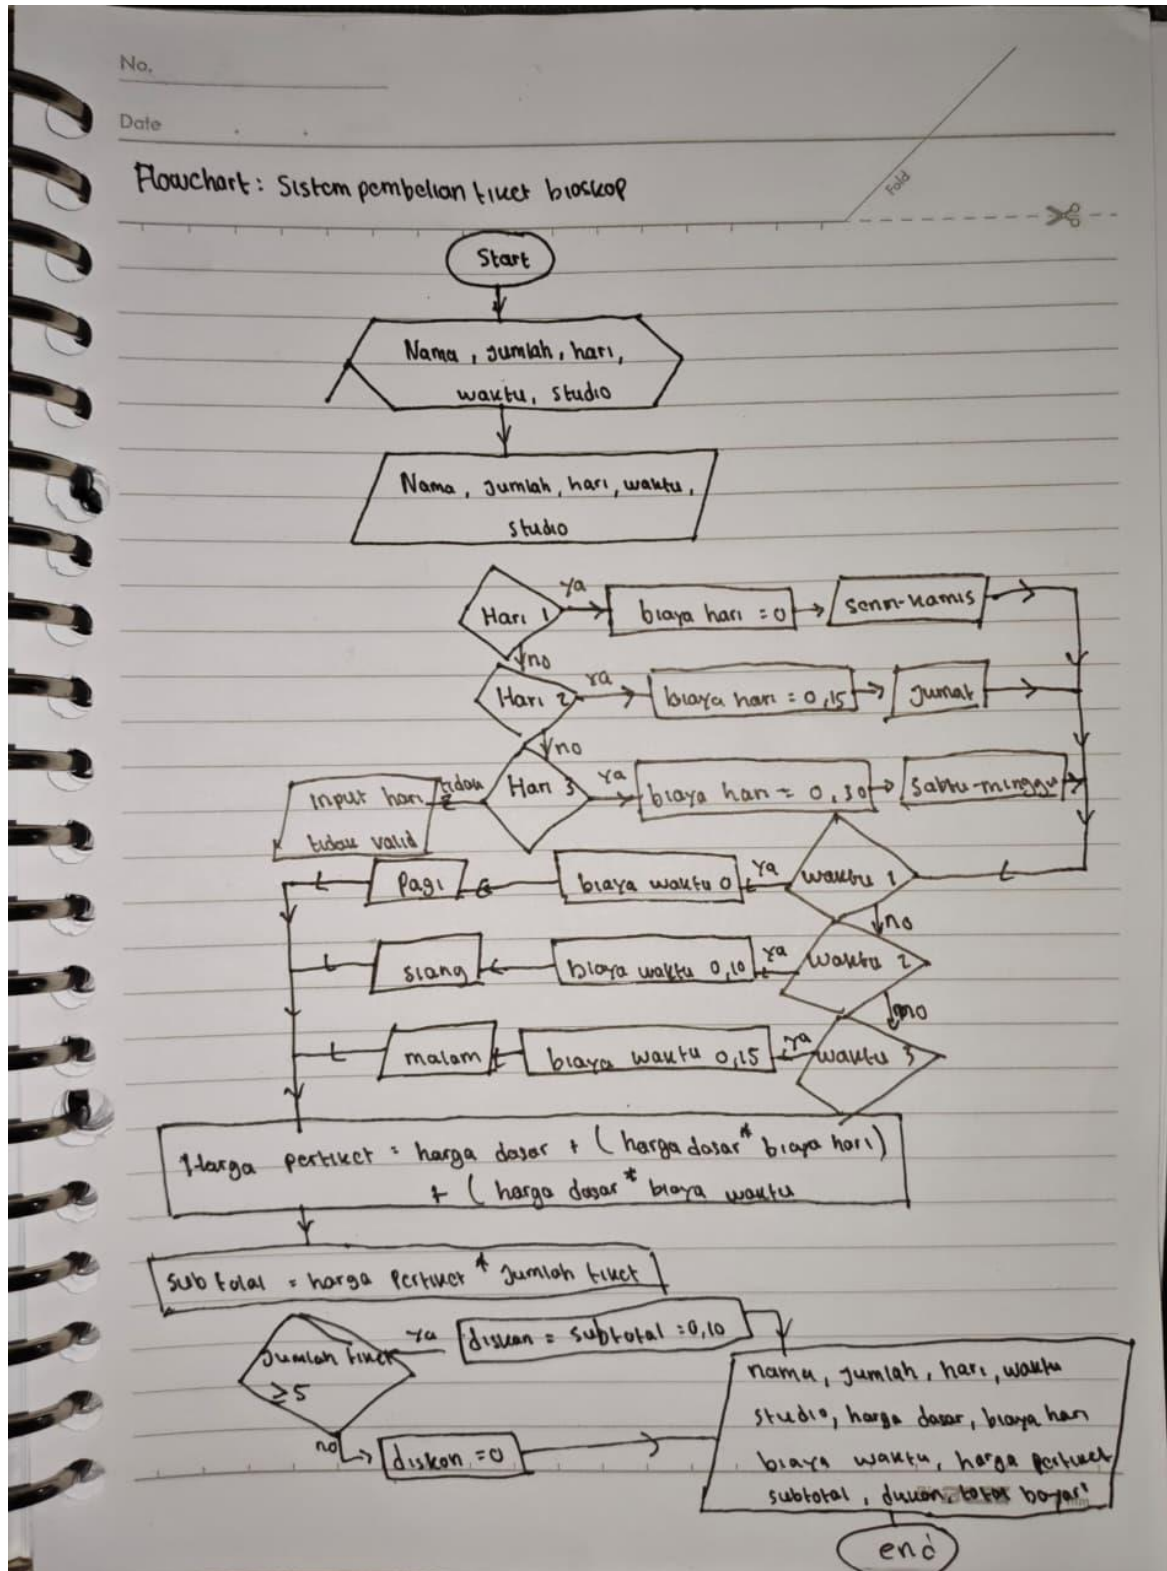 No.
Date
Fold
Flowchart: Sistem pembelian tiket bioskop
Start
Nama, jumlah, hari,
waktu, studio
Nama, jumlah, hari, waktu,
studio
Hari 1
ya
biaya hari = 0
senin-kamis
no
Hari 2
ya
biaya hari = 0,15
jumat
no
Hari 3
ya
biaya hari = 0,30
sabtu-minggu
tidak
input hari
tidak valid
waktu 1
ya
biaya waktu 0
Pagi
no
waktu 2
ya
biaya waktu 0,10
siang
no
waktu 3
ya
biaya waktu 0,15
malam
Harga pertiket = harga dasar + (harga dasar * biaya hari)
+ (harga dasar * biaya waktu
sub total = harga pertiket * jumlah tiket
Jumlah tiket
≥ 5
ya
diskon = subtotal = 0,10
no
diskon = 0
nama, jumlah, hari, waktu
studio, harga dasar, biaya hari
biaya waktu, harga pertiket
subtotal, diskon, total bayar
end